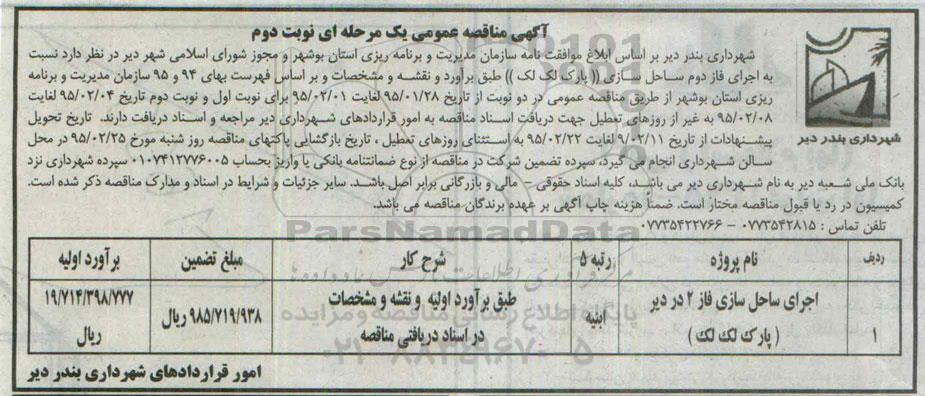 آگهی مناقصه عمومی یک مرحله ای نوبت دوم
شهرداری بندر دیر بر اساس ابلاغ موافقت نامه سازمان مدیریت و برنامه ریزی استان بوشهر و مجوز شورای اسلامی شهر دیر در نظر دارد نسبت
به اجرای فاز دوم ساحل سازی (( پارک لک لک )) طبق برآورد و نقشه و مشخصات و بر اساس فهرست بهای ۹۴ و ۹۵ سازمان مدیریت و برنامه
ریزی استان بوشهر از طریق مناقصه عمومی در دو نوبت از تاریخ ۹۵/۰۱/۲۸ لغایت ۹۵/۰۲/۰۱ برای نوبت اول و نوبت دوم تاریخ ۹۵/۰۲/۰۴ لغایت
۹۵/۰۲/۰۸ به غیر از روزهای تعطیل جهت دریافت اسناد مناقصه به امور قراردادهای شهرداری دیر مراجعه و اسناد دریافت دارند. تاریخ تحویل
پیشنهادات از تاریخ ۹/۰۲/۱۱ لغایت ۹۵/۰۲/۲۲ به استثنای روزهای تعطیل ، تاریخ بازگشایی پاکتهای مناقصه روز شنبه مورخ ۹۵/۰۲/۲۵ در محل
سالن شهرداری انجام می گیرد، سپرده تضمین شرکت در مناقصه از نوع ضمانتنامه بانکی یا واریز بحساب ۰۱۰۷۴۱۲۷۷۶۰۰۵ سپرده شهرداری نزد
بانک ملی شعبه دیر به نام شهرداری دیر می باشد، کلیه اسناد حقوقی – مالی و بازرگانی برابر اصل باشد. سایر جزئیات و شرایط در اسناد و مدارک مناقصه ذکر شده است.
کمیسیون در رد یا قبول مناقصه مختار است. ضمناً هزینه چاپ آگهی بر عهده برندگان مناقصه می باشد.
تلفن تماس : ۰۷۷۳۵۴۲۸۱۵ – ۰۷۷۳۵۴۲۲۷۶۶
شهرداری بندر دیر
ParsNamadData
ردیف نام پروژه رتبه ۵ شرح کار مبلغ تضمین برآورد اولیه
۱ اجرای ساحل سازی فاز ۲ در دیر ابنیه طبق برآورد اولیه و نقشه و مشخصات ۹۸۵/۷۱۹/۹۳۸ ریال ۱۹/۷۱۴/۳۹۸/۷۷۷
( پارک لک لک ) در اسناد دریافتی مناقصه ریال
پایگاه اطلاع رسانی مناقصه و مزایده
امور قراردادهای شهرداری بندر دیر